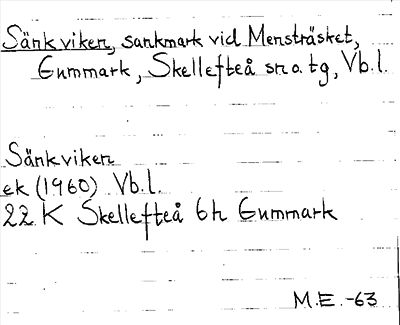 Sänkviken, sankmark vid Mensträsket,
Gummark, Skellefteå sn o. tg, Vb.l.
Sänkviken
ek (1960) Vb.l.
22 K Skellefteå 6h Gummark
M.E. -63